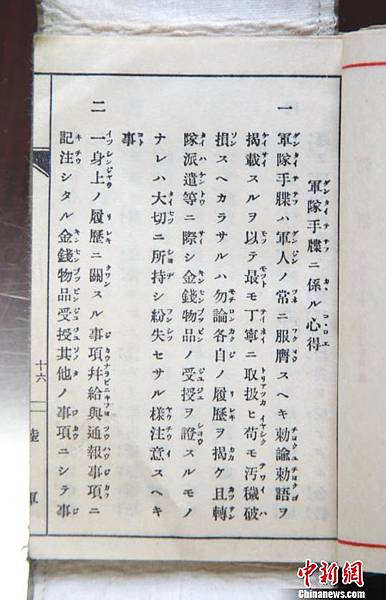 軍隊手牒ニ係ル心得
一 軍隊手牒ハ軍人ノ常ニ服膺スヘキ勅諭勅語ヲ
揭載スルヲ以テ最モ丁寧ニ取扱ヒ苟モ汚穢破
損スヘカラサルハ勿論各自ノ履歷ヲ揭ケ且轉
隊派遣等ニ際シ金錢物品ノ受授ヲ證スルモノ
ナレハ大切ニ所持シ紛失セサル樣注意スヘキ
事
二 一身上ノ履歷ニ關スル事項幷給與通報事項ニ
記注シタル金錢物品受授其他ノ事項ニシテ事
十六
陸軍
中新网
www.chinanews.com